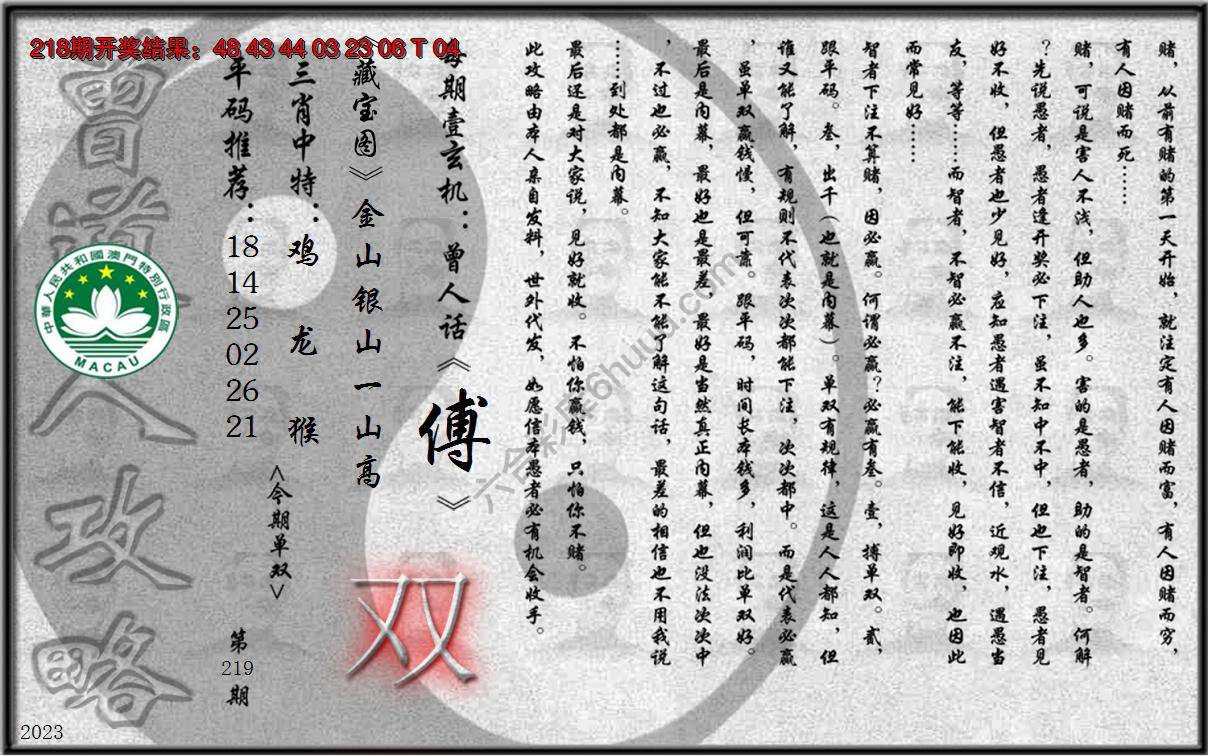 218期开奖结果：48 43 44 03 23 06 T 04
赌，从前有赌的第一天开始，就注定有人因赌而富，有人因赌而穷，
有人因赌而死……
赌，可说是害人不浅，但助人也多。害的是愚者，助的是智者。何解
？先说愚者，愚者逢开奖必下注，虽不知中不中，但也下注，愚者见
好不收，但愚者也少见好，应知愚者遇害智者不信，近观水，遇愚当
友，等等……而智者，不智必赢不注，能下能收，见好即收，也因此
而常见好……
智者下注不算赌，因必赢。何谓必赢？必赢有叁。壹，搏单双。贰，
跟平码。叁，出千（也就是内幕）。单双有规律，这是人人都知，但
谁又能了解，有规则不代表次次都能下注，次次都中。而是代表必赢
，虽单双赢钱慢，但可靠。跟平码，时间长本钱多，利润比单双好。
最后是内幕，最好也是最差，最好是当然真正内幕，但也没法次次中
，不过也必赢，不知大家能不能了解这句话，最差的相信也不用我说
……到处都是内幕。
最后还是对大家说，见好就收。不怕你赢钱，只怕你不赌。
此攻略由本人亲自发料，世外代发，如愿信本愚者必有机会收手。
每期壹玄机：曾人话《傅》
《藏宝图》金山银山一山高
双
三肖中特：鸡 龙 猴
<今期单双>
平码推荐：18 14 25 02 26 21
第219期
曾道人攻略
中華人民共和國澳門特別行政區
MACAU
2023
六合彩库6huuu.com